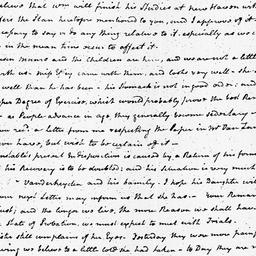 believes that Wm will finish his Studies at new Haven with
fers the Plan heretofore mentioned to you, and I approve of it
capacity to say or do any thing relative to it. especially as we c
in the mean time seem to affect it.
and the Children are him, and we are not a little
with us. they came with them, and looks very well – she
well than he has been – his Stomach is not in good order; and
per Degree of Exercise, which would probably prove the best Rem
– as People advance in age, they generally become sedentary –
you recd. a letter from me respecting the Paper in Mr Van
you have, but wish to be certain of it –
present Indisposition is caused by a Return of his form
his Recovery is to be doubted; and his Situation is very much
– Vanderheyden and his family. I hope his Daughter will
your next Letter may inform us that she has – Your Remar
just; and the longer we live, the more Reason we shall have
a State of Probation, we must expect to meet with Trials.
still complains of his Eyes. Yesterday they were more pain
owing we believe to a little cold she had taken – to Day they are